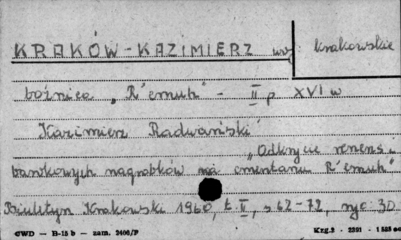 KRAKÓW-KAZIMIERZ wo. krakowskie
bożnica „R'emuh" - II p XVI w
Kazimierz Radwański
„Odkrycie renens
bankowych nagrobków na cmentarzu R'emuh"
Biuletyn Krakowski 1960, t. II, s 62-72, ryc 30
CWD — B-15 b — zam. 2406/P